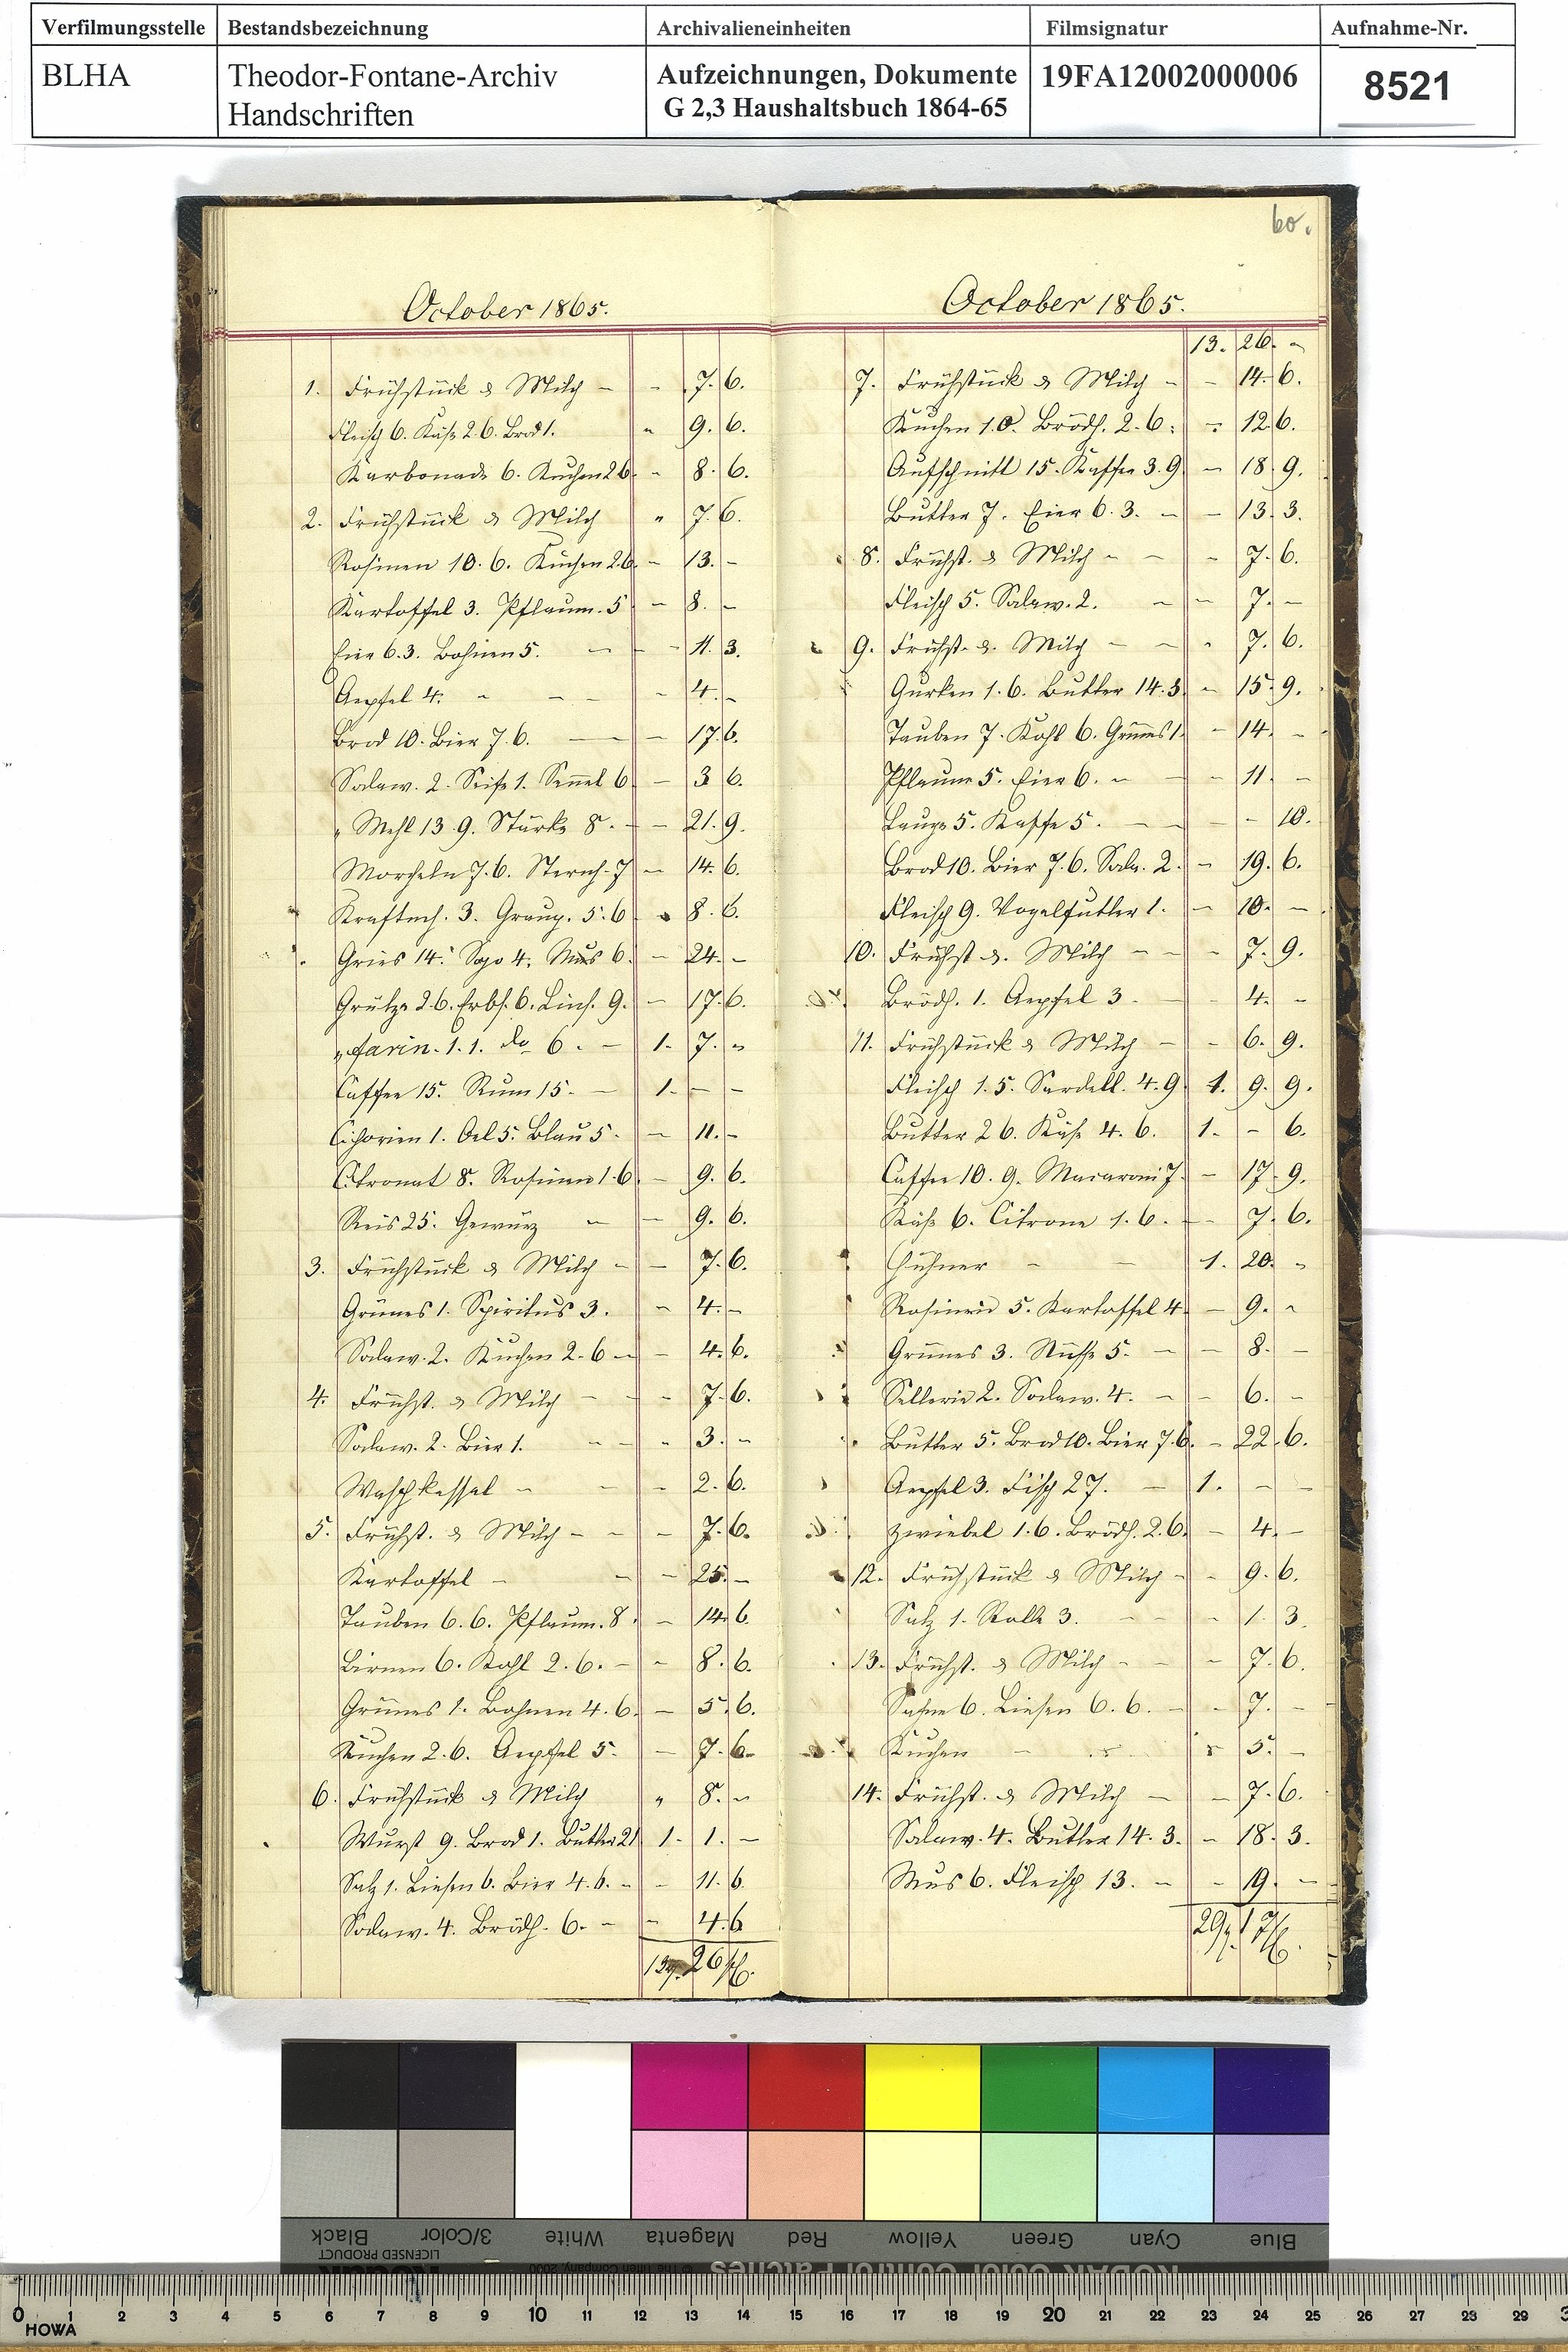 Verfilmungsstelle Bestandsbezeichnung Archivalieneinheiten Filmsignatur Aufnahme-Nr.
BLHA Theodor-Fontane-Archiv Handschriften Aufzeichnungen, Dokumente G 2,3 Haushaltsbuch 1864-65 19FA12002000006 8521
October 1865.
1. Frühstück & Milch - - 7. 6.
Fleisch 6. Käse 2.6. Brod 1. " 9. 6.
Karbonade 6. Kuchen 2 6. - 8. 6.
2. Frühstück & Milch " 7. 6.
Rosinen 10. 6. Kuchen 2.6. - 13. -
Kartoffel 3. Pflaum. 5 - 8. -
Eier 6.3. Bohnen 5. - - 11. 3.
Aepfel 4. - - - 4. -
Brod 10. Bier 7. 6. - - 17. 6.
Sodaw. 2. Seife 1. Semel 6 - 3 6.
" Mehl 13 9. Stärke 8. - - 21. 9.
Morcheln 7. 6. Sternch. 7 - 14. 6.
Kraftm. 3. Graup. 5. 6 - 8. 6.
Gries 14. Sago 4. Mus 6. - 24. -
Grütze 2 6. Erbs. 6. Lins. 9. - 17. 6.
" farin. 1. 1. do 6. - 1. 7. "
Caffee 15. Rum 15. - 1. - -
Cichorien 1. Oel 5. Blau 5. - 11. -
Citronat 8. Rosinen 1. 6 - 9. 6.
Reis 25. Gewürz - - 9. 6.
3. Frühstück & Milch - - 7. 6.
Grünes 1. Spiritus 3. - 4. -
Sodaw. 2. Kuchen 2. 6 - - 4. 6.
4. Frühst. & Milch - - - 7. 6.
Sodaw. 2. Bier 1. - - - 3. -
Waschkessel - - - 2. 6.
5. Frühst. & Milch - - - 7. 6.
Kartoffel - - - 25. -
Tauben 6. 6. Pflaum. 8. - 14. 6.
Birnen 6. Kohl 2. 6. - - 8. 6.
Grünes 1. Bohnen 4. 6. - 5. 6.
Kuchen 2. 6. Aepfel 5. - 7. 6.
6. Frühstück & Milch " 8. -
Wurst 9. Brod 1. Butter 21 1. 1. -
Salz 1. Liesen 6. Bier 4. 6. - - 11. 6.
Sodaw. 4. Brödch. 6. - - 4. 6
13 26 6.
60.
October 1865.
13. 26. -
7. Frühstück & Milch - - 14. 6.
Kuchen 10. Brödch. 2. 6. - 12. 6.
Aufschnitt 15. Kaffee 3. 9 - 18. 9.
Butter 7. Eier 6. 3. - - 13. 3.
8. Frühst. & Milch - - - 7. 6.
Fleisch 5. Sodaw. 2. - - 7. -
9. Frühst. & Milch - - - 7. 6.
Gurken 1. 6. Butter 14. 3. - 15. 9.
Tauben 7. Kohl 6. Grünes 1. - 14. -
Pflaum 5. Eier 6. - - - 11. -
Lauge 5. Kaffe 5. - - - - 10.
Brod 10. Bier 7. 6. Sodw. 2. - 19. 6.
Fleisch 9. Vogelfutter 1. - 10. -
10. Frühst. & Milch - - - 7. 9.
Brödch. 1. Aepfel 3. - 4. -
11. Frühstück & Milch - - 6. 9.
Fleisch 1. 5. Sardell. 4. 9. 1. 9. 9.
Butter 26. Käse 4. 6. 1. - 6.
Caffee 10. 9. Macaroni 7. - 17. 9.
Käse 6. Citrone 1. 6. - - 7. 6.
Hühner - - 1. 20. -
Rosinen 5. Kartoffel 4. - 9. -
Grünes 3. Nüsse 5. - - 8. -
Sellerie 2. Sodaw. 4. - - 6. -
Butter 5. Brod 10. Bier 7. 6. - 22. 6.
Aepfel 3. Fisch 27. - 1. - -
Zwiebel 1. 6. Brödch. 2. 6. - 4. -
12. Frühstück & Milch - - 9. 6.
Salz 1. Rolle 3. - - - 1. 3.
13. Frühst. & Milch - - - 7. 6.
Sahne 6. Liesen 6. 6. - - 7. -
Kuchen - 5. -
14. Frühst. & Milch - - 7. 6.
Sodaw. 4. Butter 14. 3. - 18. 3.
Mus 6. Fleisch 13. - - 19. -
29 17 6.
Black 3/Color White Magenta Red Yellow Green Cyan Blue
LICENSED PRODUCT
Kodak © The Tiffen Company, 2000 KODAK Color Control Patches
0 1 2 3 4 5 6 7 8 9 10 11 12 13 14 15 16 17 18 19 20 21 22 23 24 25 26 27 28 29
HOWA